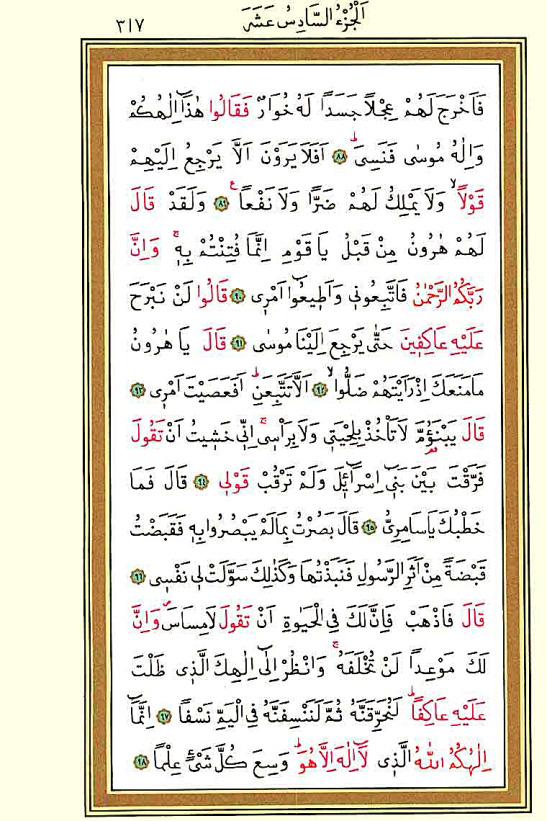 اَلْجُزْءُ السَّادِسُ عَشَرَ
٣١٧
فَاَخْرَجَ لَهُمْ عِجْلاً جَسَداً لَهُ خُوَارٌ فَقَالُوا هٰذَٓا اِلٰهُكُمْ
وَاِلٰهُ مُوسٰى فَنَسِىَۜ ﴿٨٨﴾ اَفَلَا يَرَوْنَ اَلَّا يَرْجِعُ اِلَيْهِمْ
قَوْلاًۙ وَلَا يَمْلِكُ لَهُمْ ضَرًّا وَلَا نَفْعاًۚ ﴿٨٩﴾ وَلَقَدْ قَالَ
لَهُمْ هٰرُونُ مِنْ قَبْلُ يَا قَوْمِ اِنَّمَا فُتِنْتُمْ بِه۪ۚ وَاِنَّ
رَبَّكُمُ الرَّحْمٰنُ فَاتَّبِعُون۪ى وَاَط۪يعُٓوا اَمْر۪ى ﴿٩٠﴾ قَالُوا لَنْ نَبْرَحَ
عَلَيْهِ عَاكِف۪ينَ حَتّٰى يَرْجِعَ اِلَيْنَا مُوسٰى ﴿٩١﴾ قَالَ يَا هٰرُونُ
مَا مَنَعَكَ اِذْ رَاَيْتَهُمْ ضَلُّٓواۙ ﴿٩٢﴾ اَلَّا تَتَّبِعَنِۜ اَفَعَصَيْتَ اَمْر۪ى ﴿٩٣﴾
قَالَ يَبْنَؤُمَّ لَا تَأْخُذْ بِلِحْيَت۪ى وَلَا بِرَاْس۪ىۚ اِنّ۪ى خَش۪يتُ اَنْ تَقُولَ
فَرَّقْتَ بَيْنَ بَن۪ٓى اِسْرَٓائ۪لَ وَلَمْ تَرْقُبْ قَوْل۪ى ﴿٩٤﴾ قَالَ فَمَا
خَطْبُكَ يَا سَامِرِىُّ ﴿٩٥﴾ قَالَ بَصُرْتُ بِمَا لَمْ يَبْصُرُوا بِه۪ فَقَبَضْتُ
قَبْضَةً مِنْ اَثَرِ الرَّسُولِ فَنَبَذْتُهَا وَكَذٰلِكَ سَوَّلَتْ ل۪ى نَفْس۪ى ﴿٩٦﴾
قَالَ فَاذْهَبْ فَاِنَّ لَكَ فِى الْحَيٰوةِ اَنْ تَقُولَ لَا مِسَاسَۖ وَاِنَّ
لَكَ مَوْعِداً لَنْ تُخْلَفَهُۚ وَانْظُرْ اِلٰٓى اِلٰهِكَ الَّذ۪ى ظَلْتَ
عَلَيْهِ عَاكِفاًۜ لَنُحَرِّقَنَّهُ ثُمَّ لَنَنْسِفَنَّهُ فِى الْيَمِّ نَسْفاً ﴿٩٧﴾ اِنَّمَٓا
اِلٰهُكُمُ اللّٰهُ الَّذ۪ى لَٓا اِلٰهَ اِلَّا هُوَۜ وَسِعَ كُلَّ شَىْءٍ عِلْماً ﴿٩٨﴾